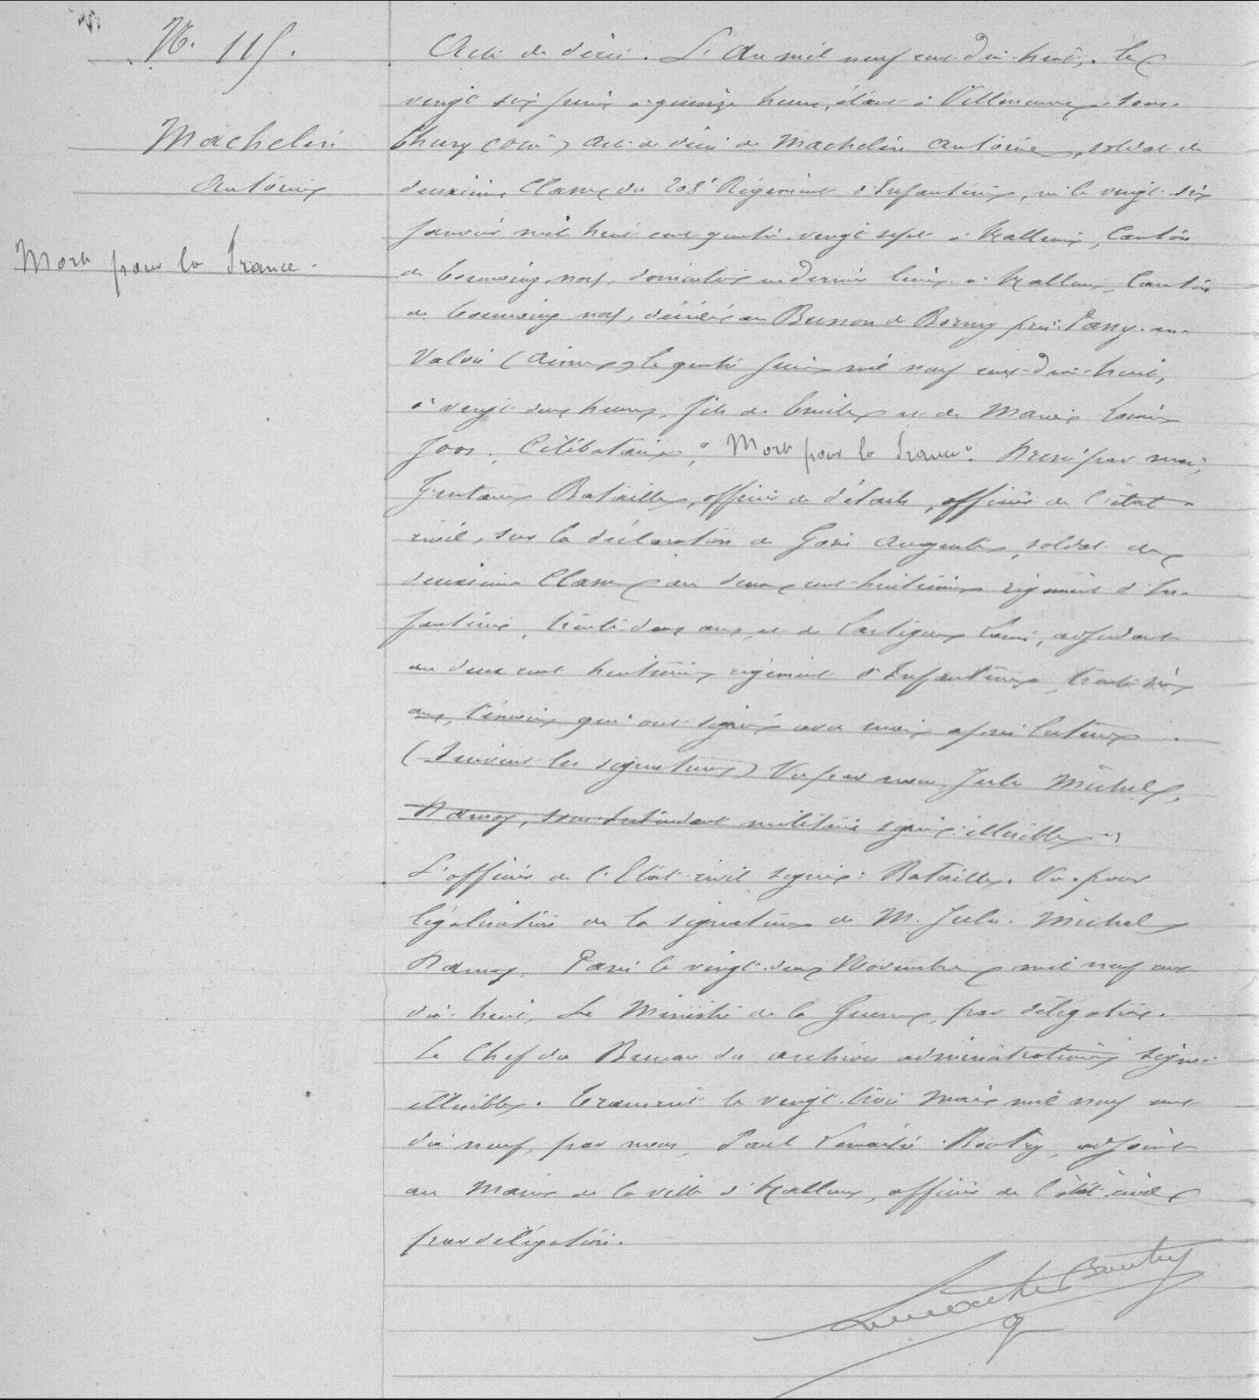 N. 115.
Machelin
Antoine
Mort pour la France.
Acte de décès. L'An mil neuf cent dix-huit, le
vingt six juin à quinze heures, étant à Villeneuve-sous-
Thury (Oise) acte de décès de Machelin Antoine, soldat de
deuxième Classe du 208e Régiment d'Infanterie, né le vingt-six
Janvier mil huit cent quatre-vingt sept à Halluin, Canton
de Tourcoing nord, domicilié en dernier lieu à Halluin, Canton
de Tourcoing nord, décédé au Buisson de Borny près Passy-en-
Valois (Aisne) le quatre Juin mil neuf cent dix-huit,
à vingt-deux heures, fils de Emile et de Marie Louise
Joos. Célibataire, "Mort pour la France". Dressé par moi,
Gustave Bataille, officier de détails, officier de l'état
civil, sur la déclaration de Augustin, soldat de
deuxième Classe au deux cent huitième régiment d'In-
fanterie, trente deux ans, et de Lartigue Louis, adjudant
au deux cent huitième régiment d'Infanterie, trente six
ans, témoins qui ont signé avec moi après lecture.
(Suivent les signatures) Vu par nous Jules Michel
Ramoy, sous-Intendant militaire signé: illisible "
L'officier de l'Etat-civil signé: Bataille. Vu pour
légalisation de la signature de M. Jules Michel
Ramoy. Paris le vingt-deux Novembre mil neuf cent
dix-huit, Le Ministre de la Guerre, par délégation.
Le Chef du Bureau des archives administratives signé
illisible. Transcrit le vingt-trois Mars mil neuf cent
dix neuf, par nous, Paul Lemaitre-Boutry, adjoint
au Maire de la ville d'Halluin, officier de l'état-civil
par délégation.
Lemaitre Boutry